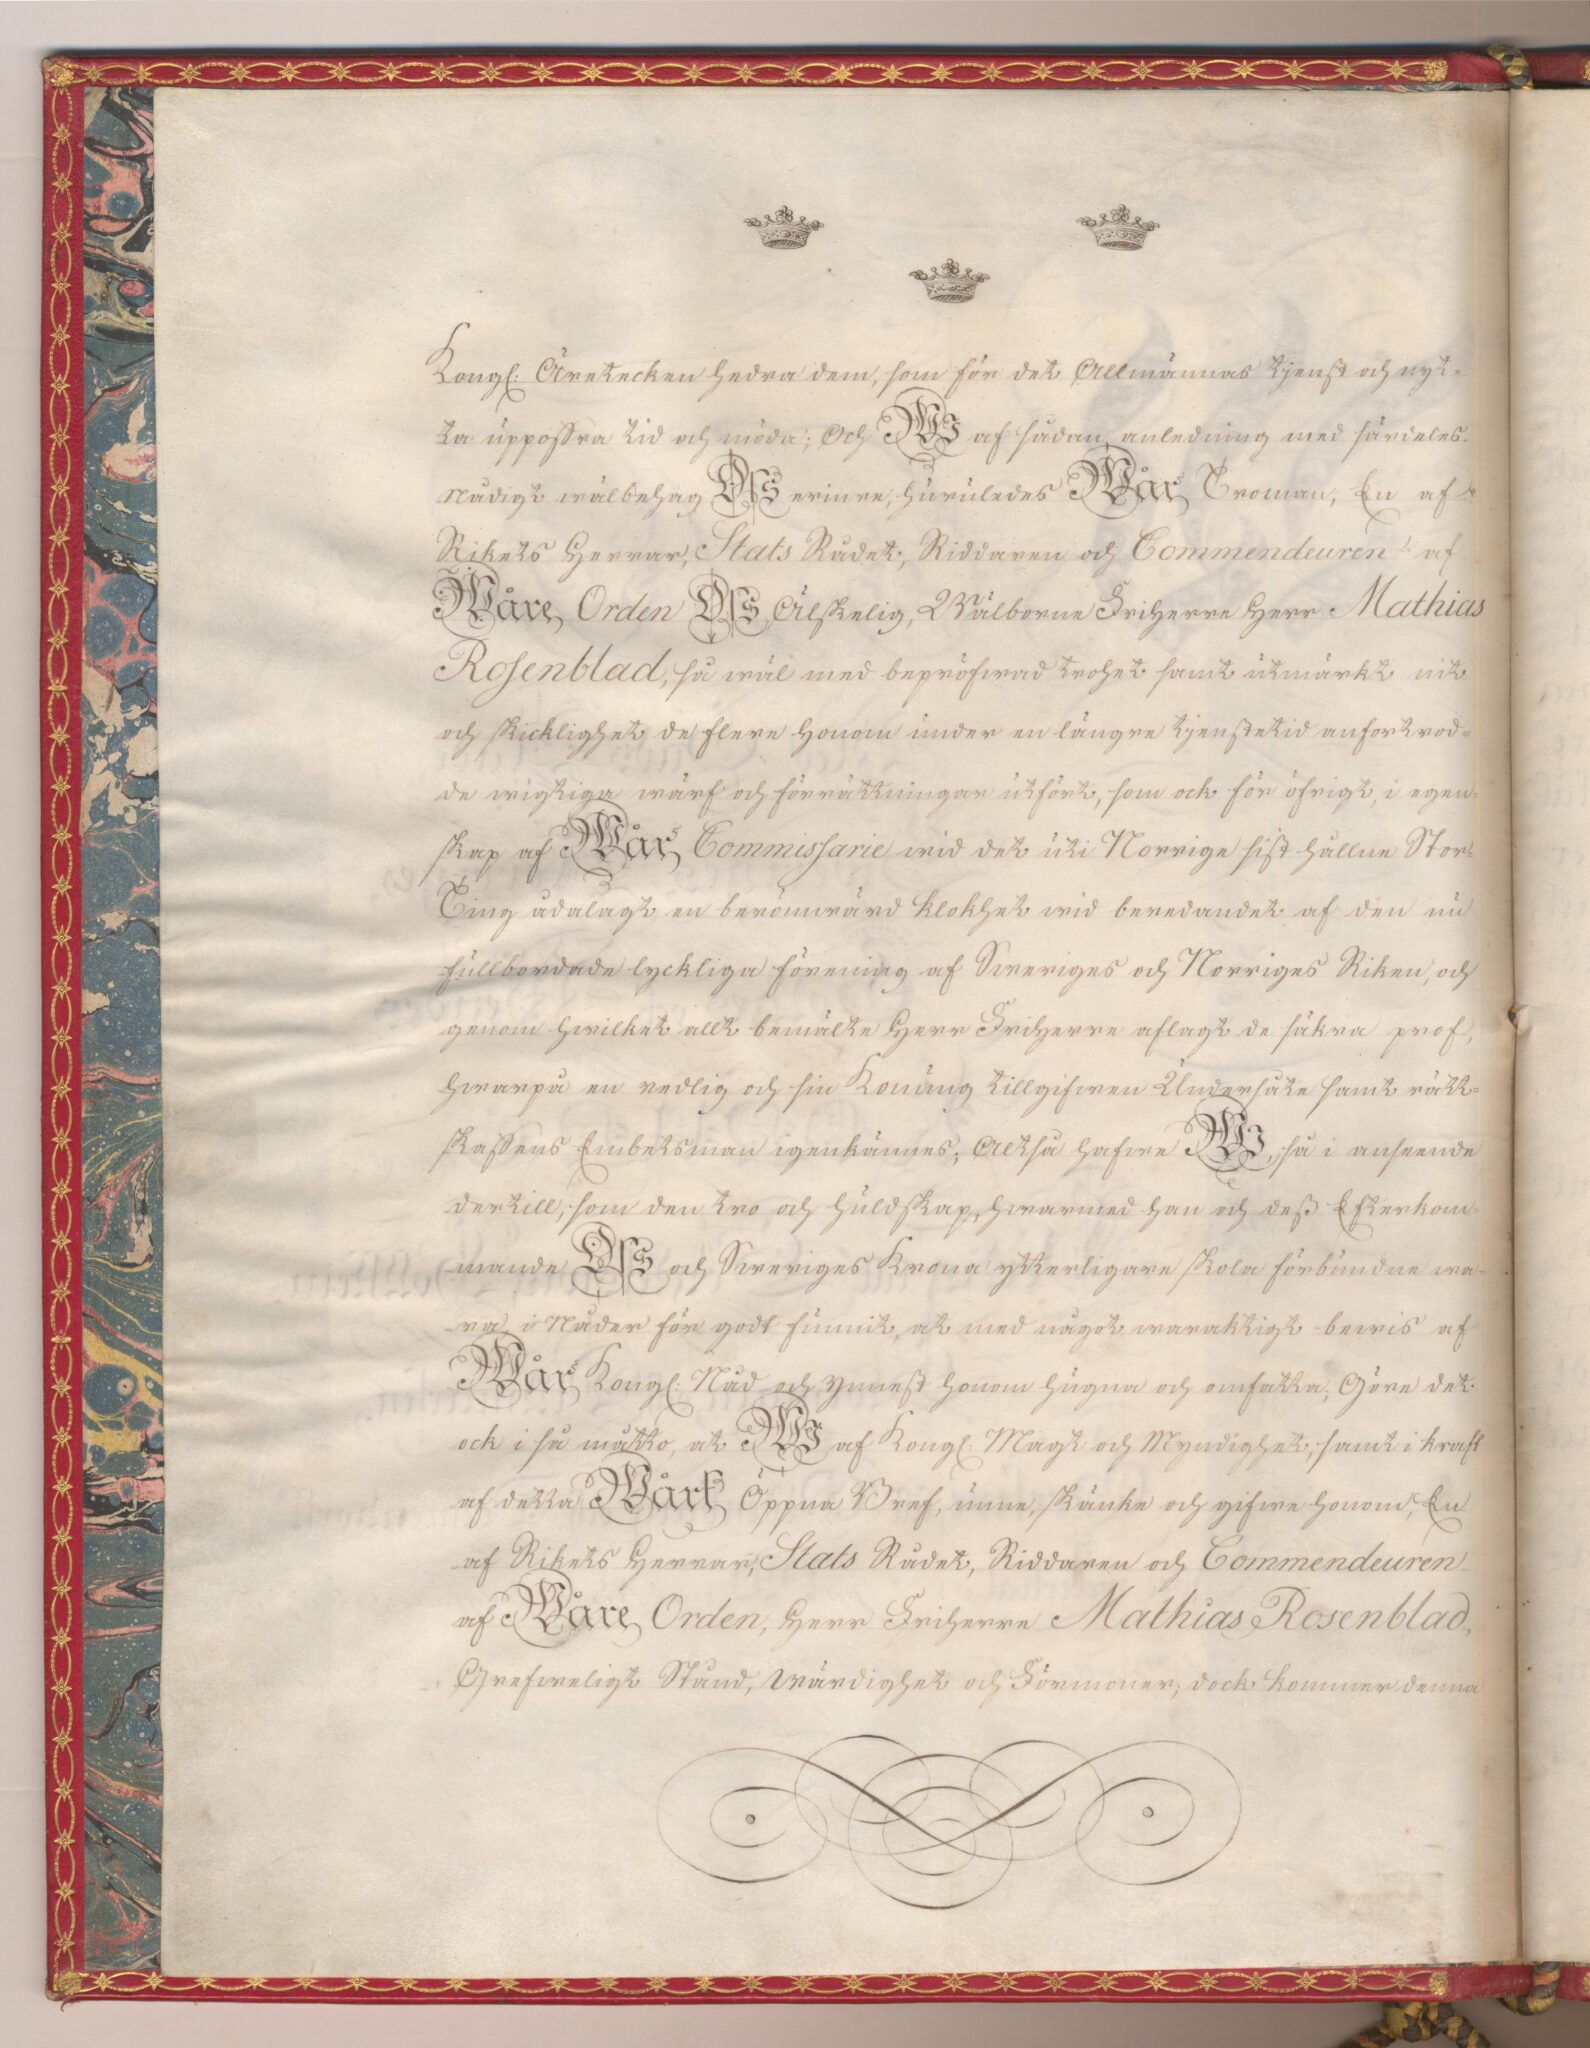 Kongl: Äretecken hedra dem, som för det Allmännas tjenst och nyt-
ta uppoffra tid och möda; Och Wi af sådan anledning med särdeles
Nådigt wälbehag Oss erinre, huruledes Wår Troman, En af
Rikets Herrar, Stats Rådet, Riddaren och Commendeuren af
Wåre Orden Oss Älskelig, Wälborne Friherre Herr Mathias
Rosenblad, så wäl med bepröfwad trohet samt utmärkt nit
och skicklighet de flere honom under en längre tjenstetid anfortrod-
de wigtiga wärf och förrättningar utfört, som ock för öfrigt, i egen-
skap af Wår Commissarie wid det uti Norrige sist hållne Stor-
Ting ådalagt en berömwärd klokhet wid beredandet af den nu
fullbordade lyckliga förening af Sweriges och Norriges Riken, och
genom hwilket allt bemälte Herr Friherre aflagt de säkra prof,
hwarpå en redlig och sin Konung tillgifwen Undersåte samt rätt-
skaffens Embetsman igenkännes; Altså hafwe Wi, så i anseende
dertill, som den tro och huldskap, hwarmed han och dess Efterkom-
mande Oss och Sweriges Krona ytterligare skola förbundne wa-
ra, i Nåder för godt funnit, at med något waraktigt bewis af
Wår Kongl: Nåd och ynnest honom hugna och omfatta; Göre det
ock i så måtto, at Wi af Kongl: Magt och Myndighet, samt i kraft
af detta Wårt Öppna Bref, unne, skänke och gifwe honom, En
af Rikets Herrar, Stats Rådet, Riddaren och Commendeuren
af Wåre Orden, Herr Friherre Mathias Rosenblad,
Grefweligt Stånd, Wärdighet och Förmoner; dock kommer denna